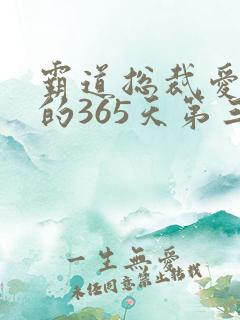 霸道总裁爱
的365天第三
一生無愛
未经同意禁止转载